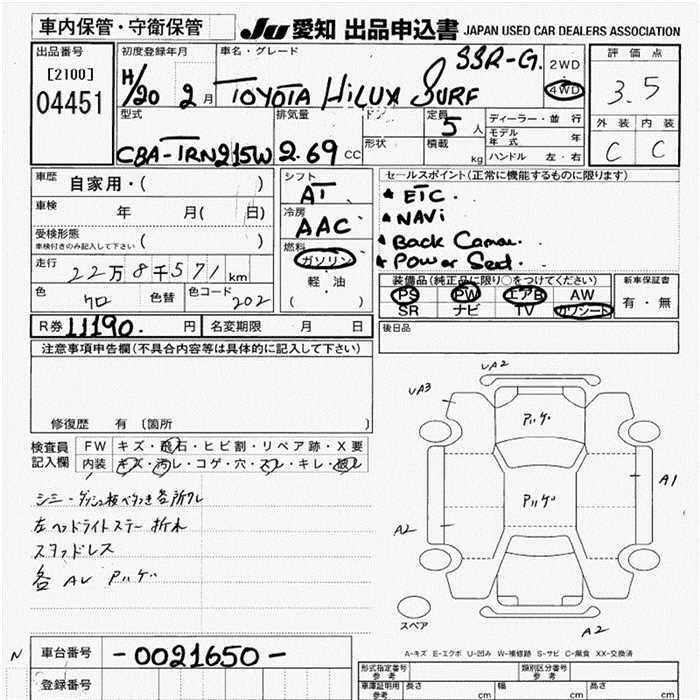 車内保管・守衛保管
JU 愛知 出品申込書 JAPAN USED CAR DEALERS ASSOCIATION
出品番号
[2100]
04451
初度登録年月
H/20 2月
車名・グレード
TOYOTA HiLUX SURF SSR-G.
2WD
4WD
評価点
3.5
外装 内装
C C
型式
CBA-TRN215W
排気量
2.69 cc
ドア
形状
定員
5 人
積載
kg
ディーラー・並行
モデル年式 年
ハンドル 左・右
車歴 自家用・( )
車検 年 月( 日)
受検形態
車検付きのみ記入して下さい ( )
走行 22万8千571 km
色 クロ 色替 色コード 202
シフト
AT
冷房
AAC
燃料
ガソリン
軽・油
( )
セールスポイント(正常に機能するものに限ります)
* ETC.
* NAVi
* Back Camera.
* Power Seat.
装備品(純正品に限り○をつけてください)
PS PW エアB AW
SR ナビ TV カワシート
新車保証書
有・無
R券 11190. 円 名変期限 月 日
後日品
注意事項申告欄(不具合内容等は具体的に記入して下さい)
修復歴 有 〔箇所 〕
検査員記入欄
FW キズ・飛石・ヒビ割・リペア跡・X要
内装 キズ・汚レ・コゲ・穴・スレ・キレ・破レ
シミ・ダッシュ板ベタつき各所スレ
左ヘッドライトステー折れ
スタッドレス
各 AU Pハゲ
UA2
UA3
Pハゲ
Pハゲ
A1
A2
スペア
A2
A-キズ E-エクボ U-凹み W-補修跡 S-サビ C-腐食 XX-交換済
N 車台番号 -0021650-
登録番号
形式指定番号
参考
類別区分番号
参考
車庫証明用
参考
長さ cm 幅 cm 高さ cm